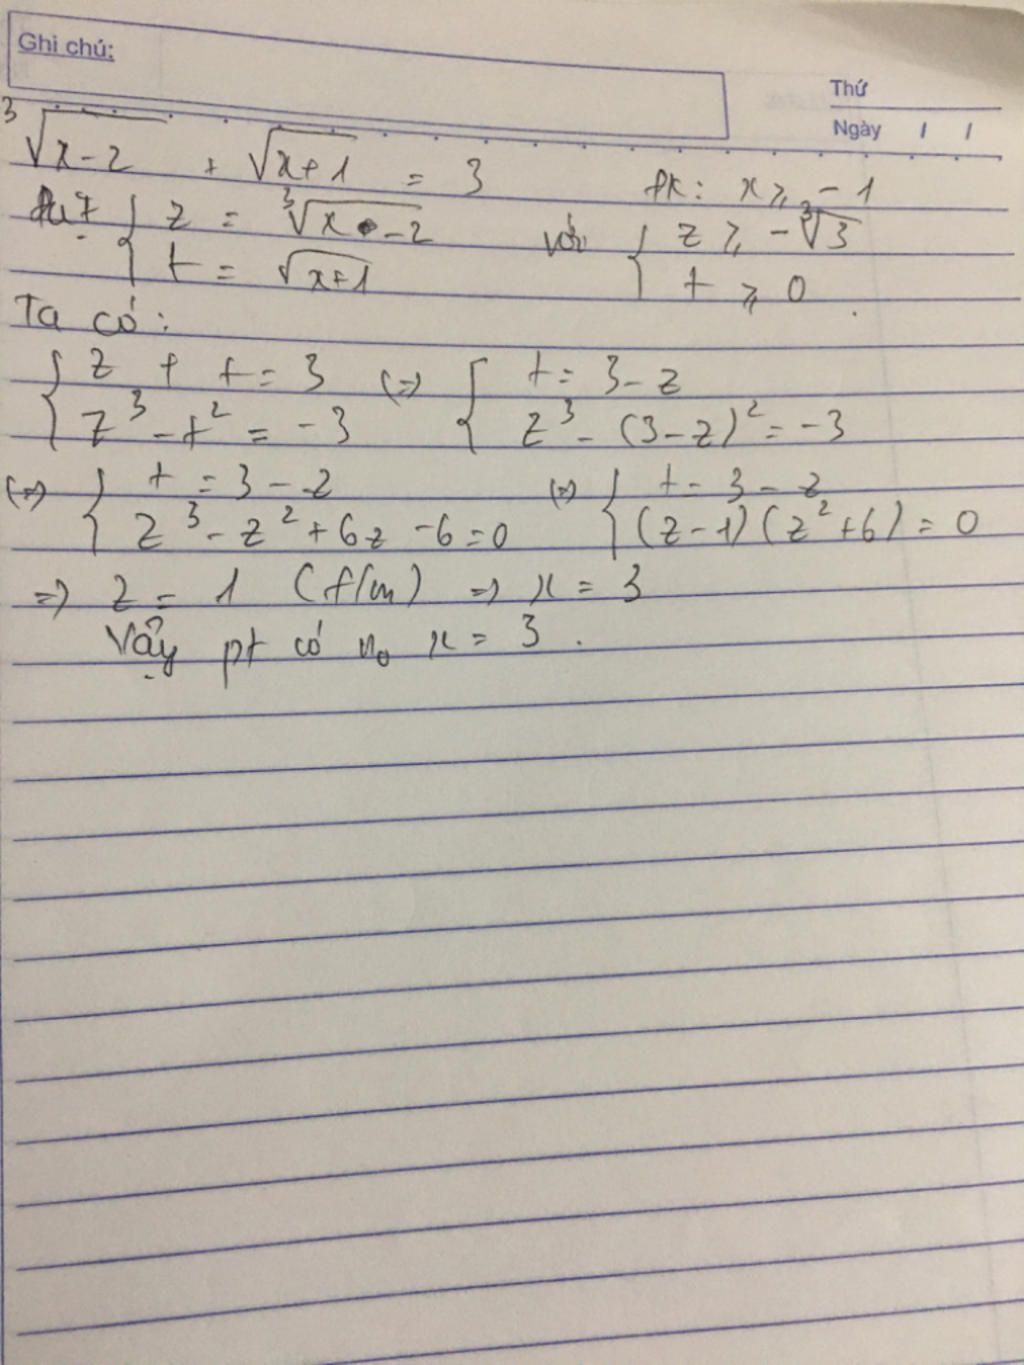 Ghi chú:
Thứ
Ngày / /
∛(x-2) + √(x+1) = 3 ĐK: x ≥ -1
Đặt { z = ∛(x-2) với { z ≥ -∛3
{ t = √(x+1) { t ≥ 0
Ta có:
{ z + t = 3 (=) { t = 3-z
{ z³ - t² = -3 { z³ - (3-z)² = -3
(=) { t = 3-z (=) { t = 3-z
{ z³ - z² + 6z - 6 = 0 { (z-1)(z²+6) = 0
=) z = 1 (t/m) =) x = 3
Vậy pt có n₀ x = 3.